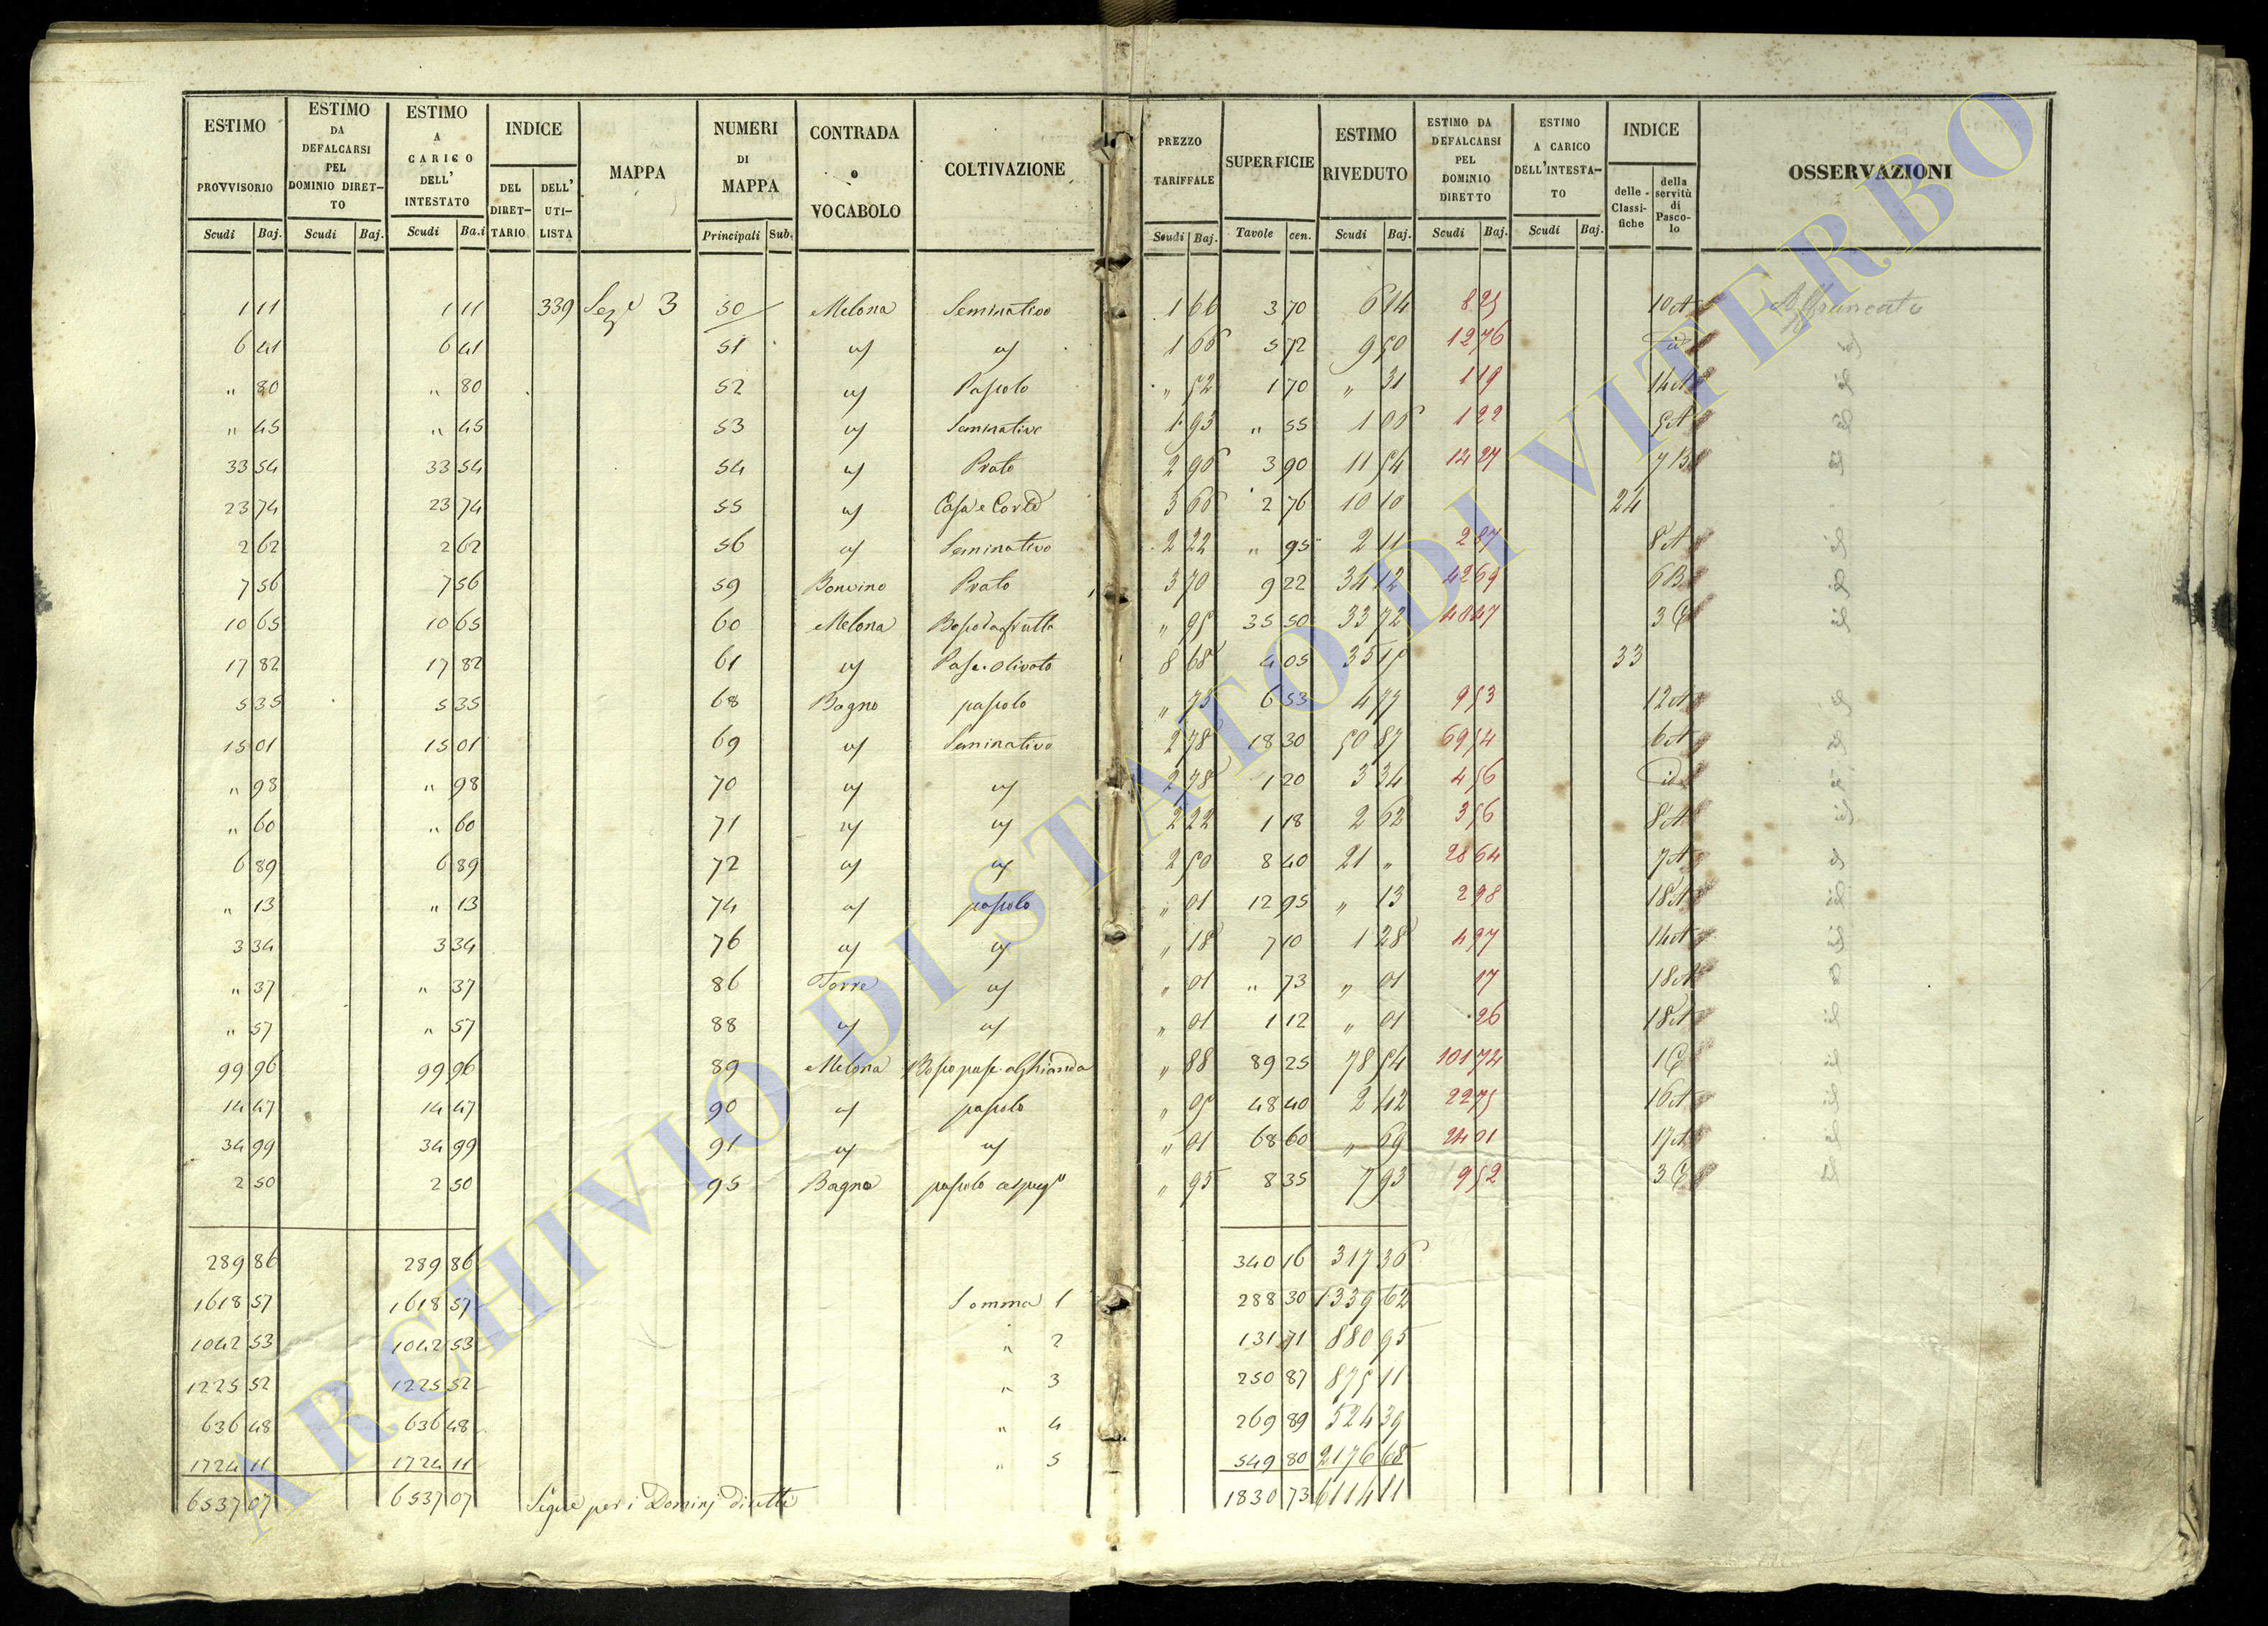 ESTIMO PROVVISORIO | ESTIMO DA DEFALCARSI PEL DOMINIO DIRETTO | ESTIMO A CARICO DELL' INTESTATO | INDICE | MAPPA | NUMERI DI MAPPA | CONTRADA o VOCABOLO | COLTIVAZIONE | PREZZO TARIFFALE | SUPERFICIE | ESTIMO RIVEDUTO | ESTIMO DA DEFALCARSI PEL DOMINIO DIRETTO | ESTIMO A CARICO DELL'INTESTATO | INDICE | OSSERVAZIONI
Scudi | Baj. | Scudi | Baj. | Scudi | Ba.i | DEL DIRETTARIO | DELL' UTILISTA | Principali | Sub. | Scudi | Baj. | Tavole | cen. | Scudi | Baj. | Scudi | Baj. | Scudi | Baj. | delle Classifiche | della servitù di Pascolo
1 11 | 1 11 | 339 | Sez.e 3 | 50 | Melona | Seminativo | 1 66 | 3 70 | 6 14 | 8 25 | 10 A | Affrancato
6 41 | 6 41 | 51 | id | id | 1 66 | 5 72 | 9 50 | 12 76 | id
" 80 | " 80 | 52 | id | Pascolo | " 52 | 1 70 | " 31 | 1 19 | 14 A
" 45 | " 45 | 53 | id | Seminativo | 1 93 | " 55 | 1 06 | 1 22 | 9 A
33 54 | 33 54 | 54 | id | Prato | 2 96 | 3 90 | 11 54 | 14 27 | 7 B
23 74 | 23 74 | 55 | id | Casa e Corte | 3 66 | 2 76 | 10 10 | 24
2 62 | 2 62 | 56 | id | Seminativo | 2 22 | " 95 | 2 11 | 2 87 | 8 A
7 56 | 7 56 | 59 | Bonvino | Prato | 3 70 | 9 22 | 34 12 | 42 69 | 6 B
10 65 | 10 65 | 60 | Melona | Bosco da frutto | " 95 | 35 50 | 33 72 | 40 47 | 3 C
17 82 | 17 82 | 61 | id | Pasc. olivato | 8 68 | 4 05 | 35 15 | 33
5 35 | 5 35 | 68 | Bagno | pascolo | " 73 | 6 53 | 4 77 | 9 53 | 12 A
15 01 | 15 01 | 69 | id | Seminativo | 2 78 | 18 30 | 50 87 | 69 54 | 6 A
" 98 | " 98 | 70 | id | id | 2 78 | 1 20 | 3 34 | 4 56 | id
" 60 | " 60 | 71 | id | id | 2 22 | 1 18 | 2 62 | 3 56 | 8 A
6 89 | 6 89 | 72 | id | id | 2 50 | 8 40 | 21 " | 28 64 | 7 A
" 13 | " 13 | 74 | id | pascolo | " 01 | 12 95 | " 13 | 2 98 | 18 A
3 34 | 3 34 | 76 | id | id | " 18 | 7 10 | 1 28 | 4 97 | 14 A
" 37 | " 37 | 86 | Torre | id | " 01 | " 73 | " 01 | 17 | 18 A
" 57 | " 57 | 88 | id | id | " 01 | 1 12 | " 01 | 26 | 18 A
99 96 | 99 96 | 89 | Melona | Bosco pasc. a Ghianda | " 88 | 89 25 | 78 54 | 101 74 | 1 C
14 47 | 14 47 | 90 | id | pascolo | " 05 | 48 40 | 2 42 | 22 75 | 16 A
34 99 | 34 99 | 91 | id | id | " 01 | 68 60 | " 69 | 24 01 | 17 A
2 50 | 2 50 | 95 | Bagno | pascolo | " 95 | 8 35 | 7 93 | 9 52 | 3 C
289 86 | 289 86 | 340 16 | 317 36
1618 57 | 1618 57 | Somma 1 | 288 30 | 1339 62
1042 53 | 1042 53 | " 2 | 131 71 | 880 95
1225 52 | 1225 52 | " 3 | 250 87 | 875 11
636 48 | 636 48 | " 4 | 269 89 | 524 39
1724 11 | 1724 11 | " 5 | 549 80 | 2176 68
6537 07 | 6537 07 | Segue per i Dominj diretti | 1830 73 | 6114 11
ARCHIVIO DI STATO DI VITERBO